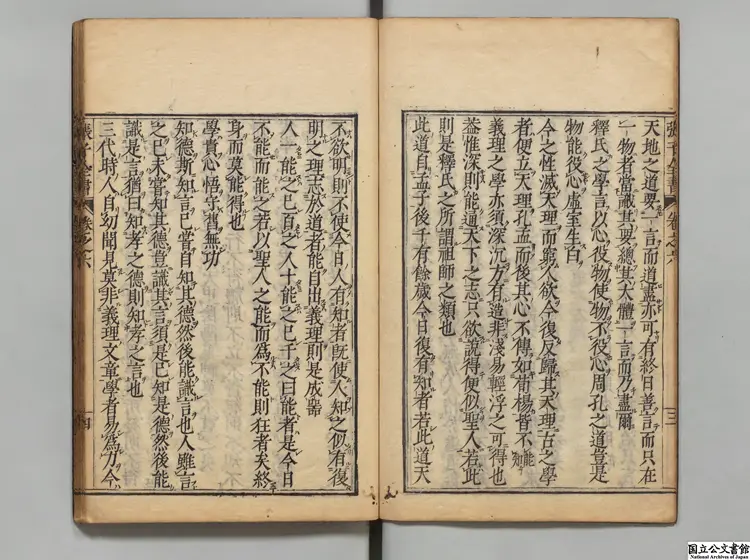 天地之道要一言而道盡亦可有終日善言而只在
一物者當識其要總其大體一言而乃盡爾
釋氏之學言以心役物使物不役心周孔之道豈是
物能役心虛室生白
今之性滅天理而窮人欲今復反歸其天理古之學
者便立天理孔孟而後其心不傳如荀揚皆不能知
義理之學亦須深沉方有造非淺易輕浮之可得也
葢惟深則能通天下之志只欲說得便似聖人若此
則是釋氏之所謂祖師之類也
此道自孟子後千有餘歲今日復有知者若此道天
不欲明則不使今日人有知者旣使人知之似有復
明之理志於道者能自出義理則是成器
人一能之己百之人十能之己千之曰能者是今日
不能而能之若以聖人之能而爲不能則狂者矣終
身而莫能得也
學貴心悟守舊無功
知德斯知言己嘗自知其德然後能識言也人雖言
之己未嘗知其德豈識其言須是己知是德然後能
識是言猶曰知孝之德則知孝之言也
三代時人自幼聞見莫非義理文章學者易爲力今
張子全書
卷之六
三
張子全書
卷之六
四
国立公文書館
National Archives of Japan